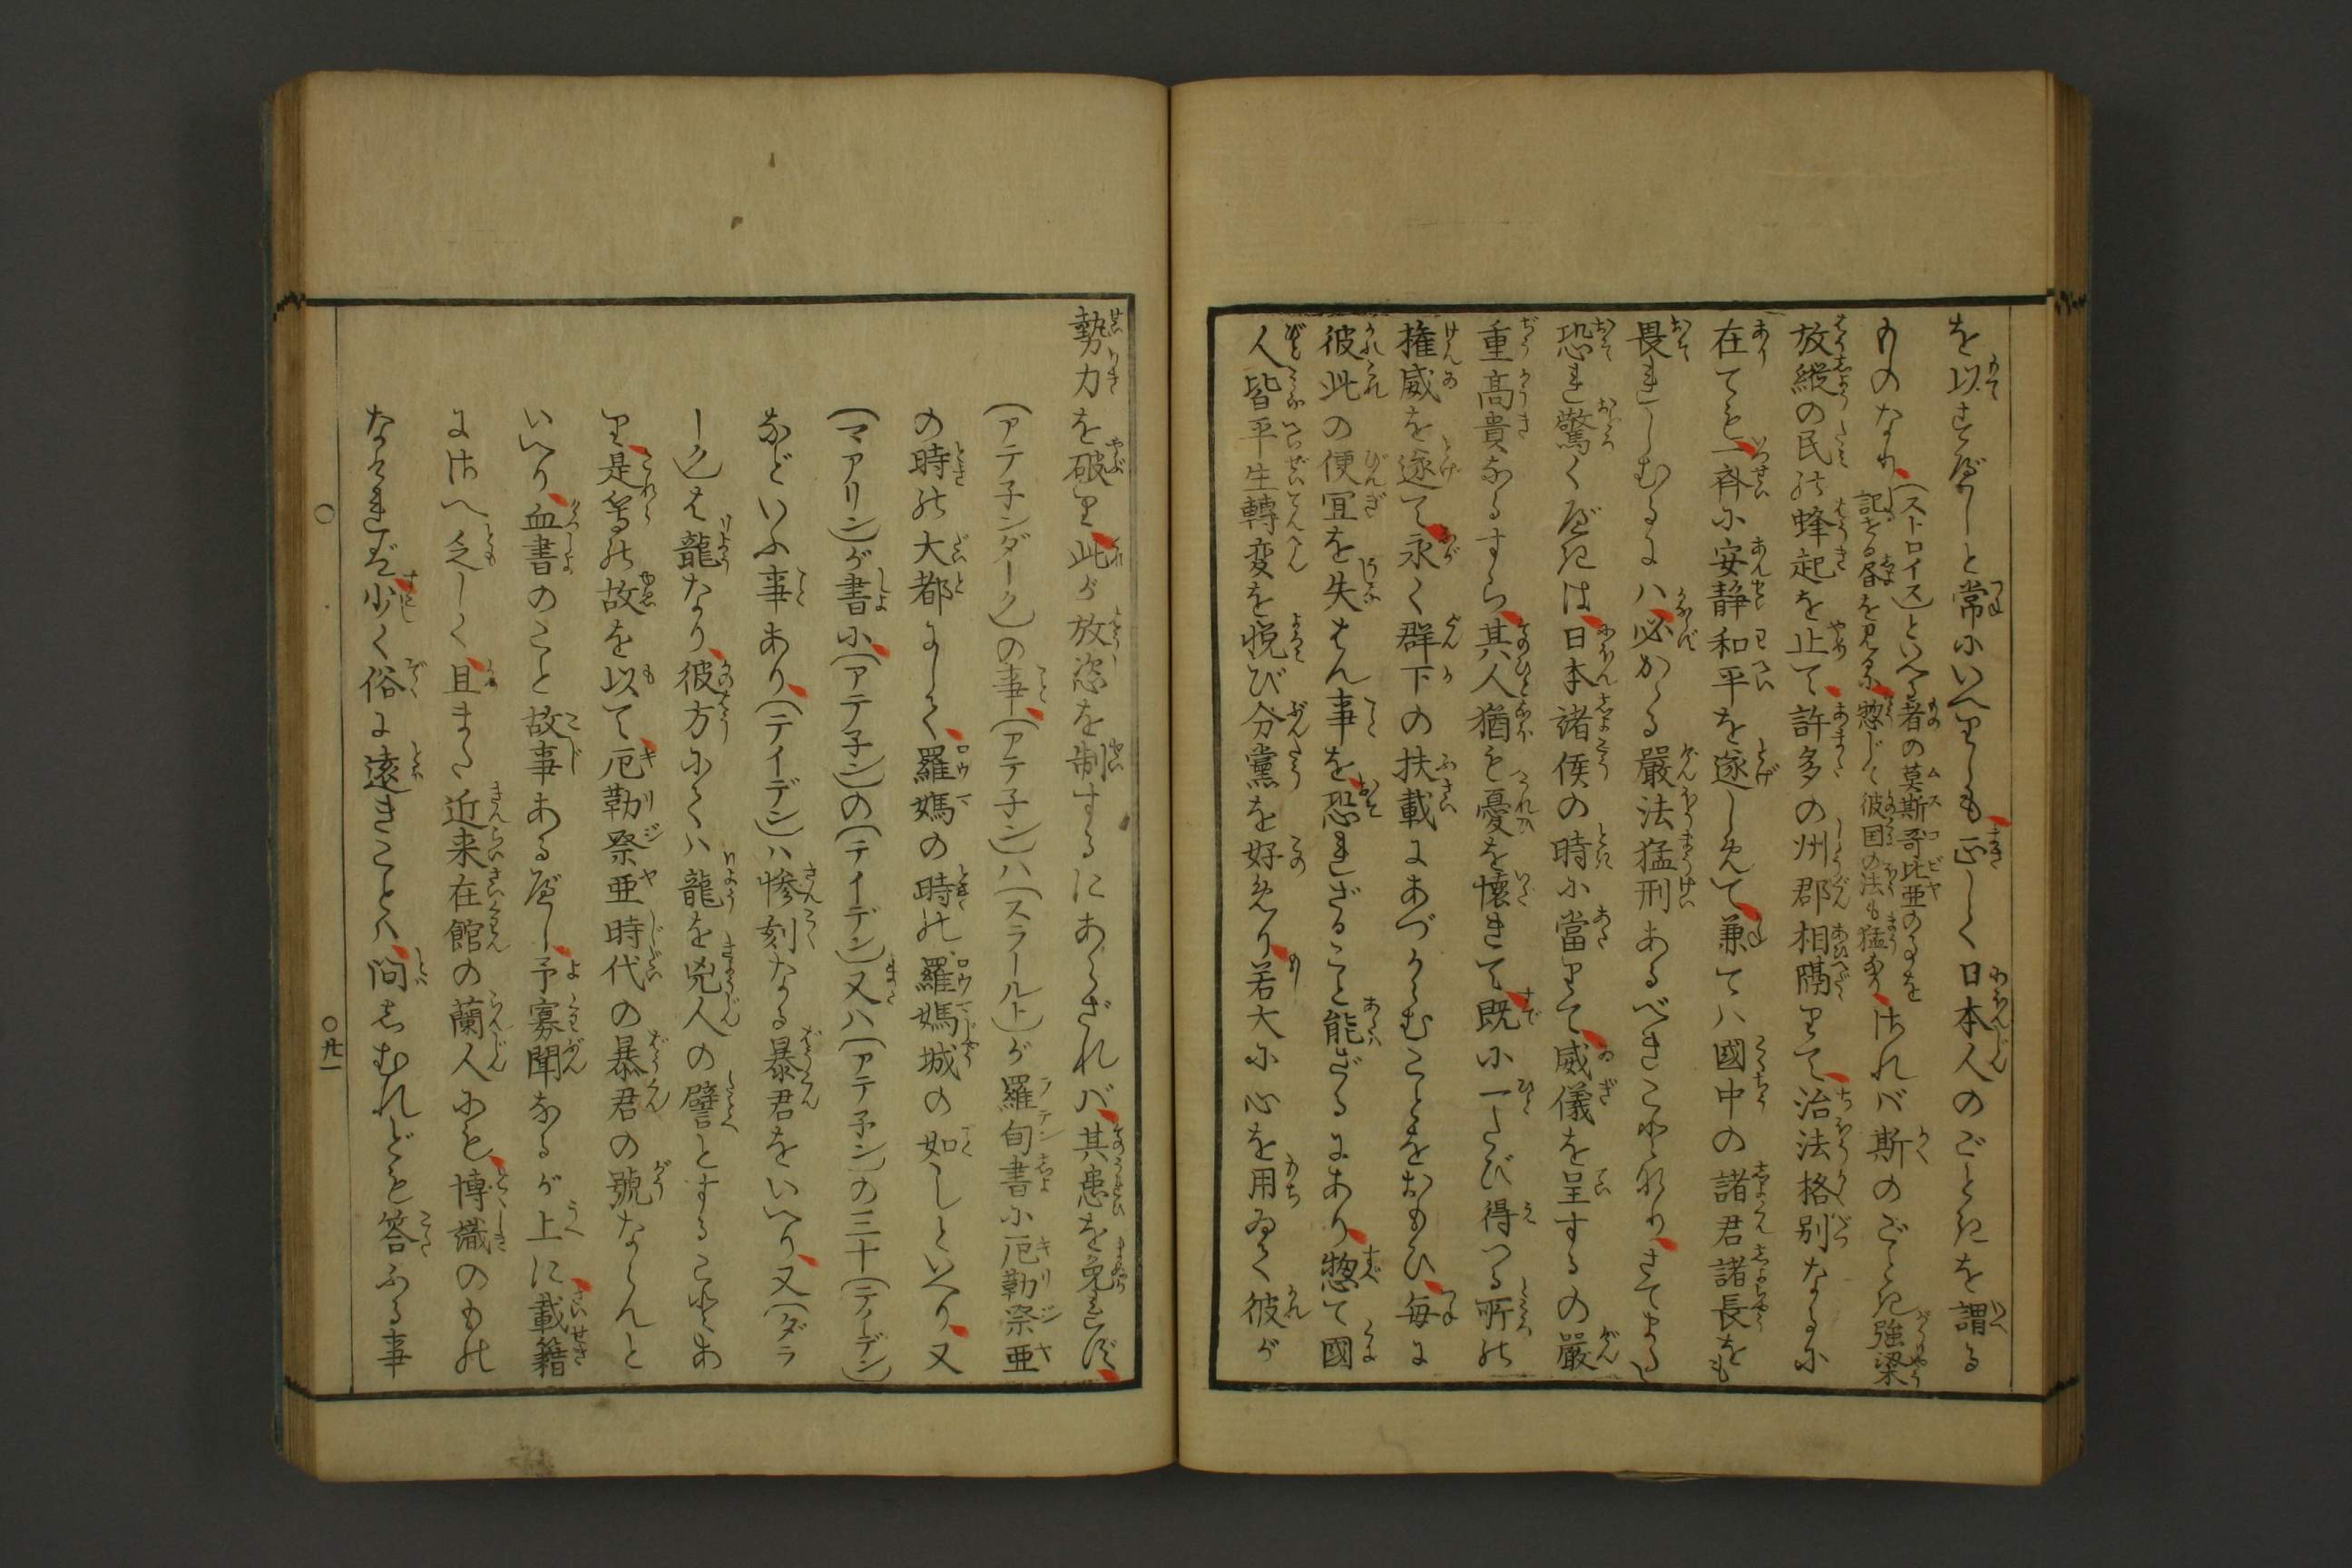 を以すべしと常にいへりしも正しく日本人のごときを謂る
ものなり(ストロイス)といへる者の莫斯哥比亜の事を
記せる書を見るに惣じて彼国の法も猛あり されバ斯のごとき強梁
放縦の民の蜂起を止て許多の州郡相隔りて治法格別なるに
在ても一斉に安静和平を遂しめて兼てハ國中の諸君諸長をも
畏れしむるにハ必かゝる嚴法猛刑あるべきことなりさてまた
恐れ驚くべきは日本諸侯の時に當りて威儀を呈するの嚴
重高貴なるすら其人猶も憂を懐きて既に一たび得つる所の
権威を遂て永く群下の扶載にあづからむことをおもひ毎に
彼此の便宜を失はん事を恐れざること能ざるにあり惣て國
人皆平生轉変を悦び分黨を好めり若大に心を用ゐて彼が
勢力を破り此が放恣を制するにあらざれバ其患を免れず
(アテ子ンダーク)の事(アテ子ン)ハ(スラールト)が羅甸書に厄勒祭亜
の時の大都にして羅媽の時の羅媽城の如しといへり又
(マアリン)が書に(アテ子ン)の(テイデン)又ハ(アテ子ン)の三十(テイデン)
などいふ事あり(テイデン)ハ惨刻なる暴君をいへり又(ダラ
ーク)は龍なり彼方にてハ龍を兇人の譬とすることあ
り是等の故を以て厄勒祭亜時代の暴君の號ならんと
いへり血書のこと故事あるべし予寡聞なるが上に載籍
にさへ乏しく且また近来在館の蘭人にも博識のもの
なければ少く俗に遠きことハ問しむれども答ふる事
〇
〇廿一